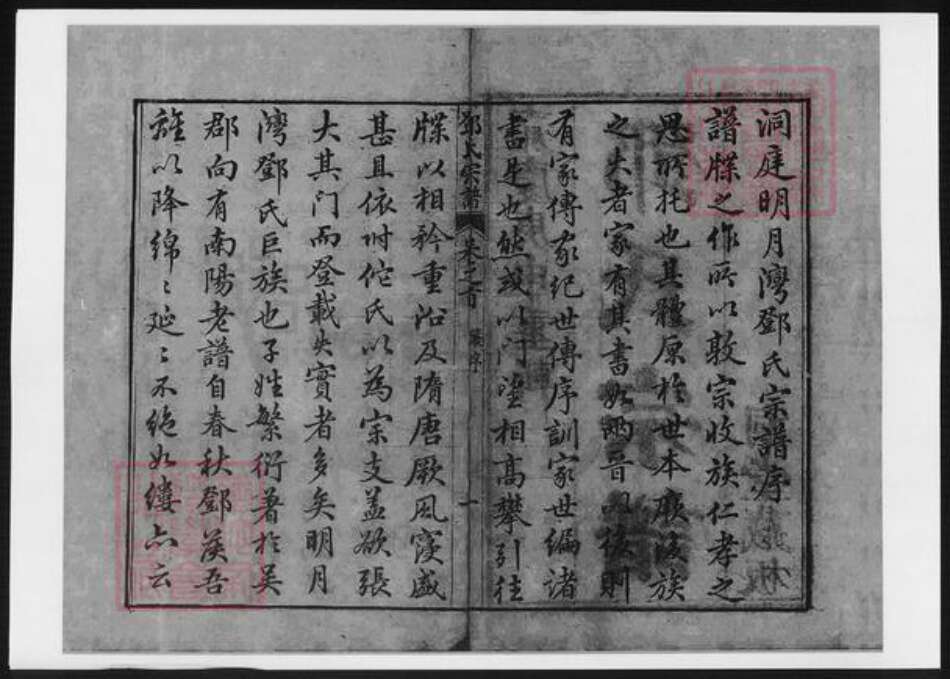 洞庭明月灣鄧氏宗譜序
譜牒之作所以敦宗收族仁孝之
思所托也其體原於世本厥後族
之夫者家有其書如兩晉以後則
有家傳家紀世傳序訓家世編諸
書是也然或以門望相高攀引往
鄧氏宗譜 卷之首 一
牒以相矜重沿及隋唐厥風寖盛
甚且依附佗氏以為宗支蓋欲張
大其門而登載失實者多矣明月
灣鄧氏巨族也子姓繁衍著於吳
郡向有南陽老譜自春秋鄧矦吾
離以降綿〻延〻不絕如縷亦云